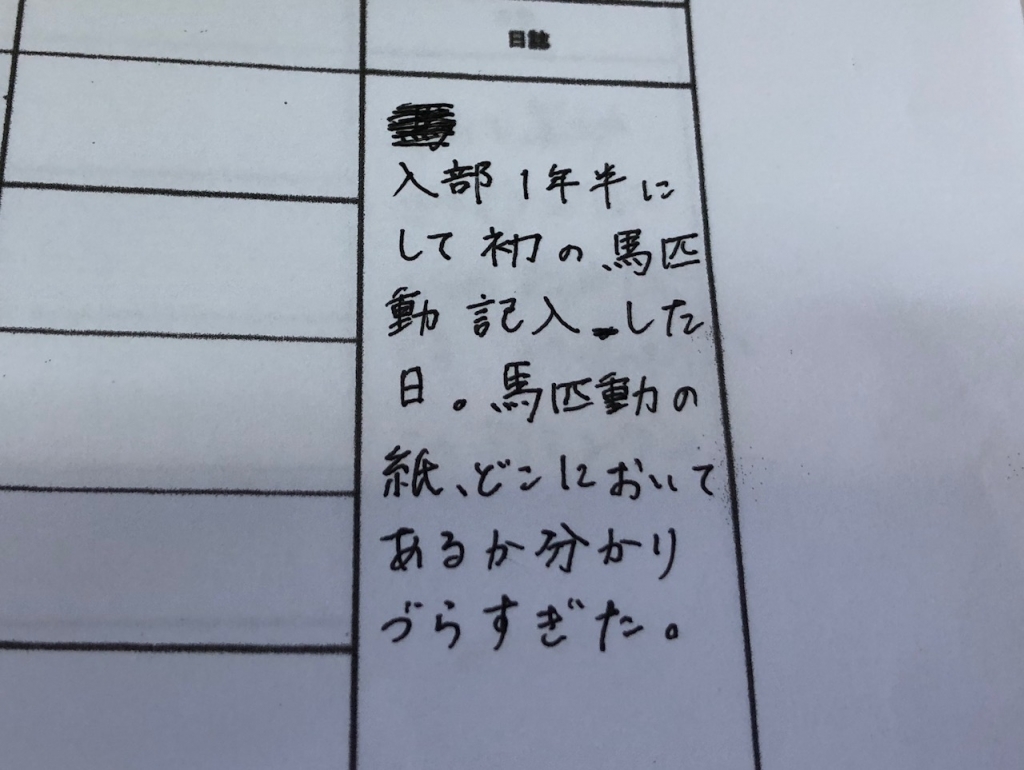 日誌
入部1年半に
して初の馬匹
動記入した
日。馬匹動の
紙、どこにおいて
あるか分かり
づらすぎた。